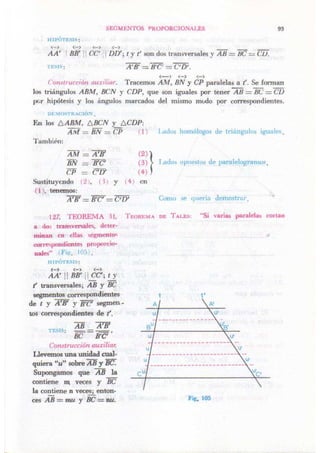 SEGMENTOS PROPORCIONALES 93
HIPÓTESIS:
AA' || BB' || CC' || DD'; t y t' son dos transversales y AB = BC = CD.
TESIS: A'B' = B'C' = C'D'.
Construcción auxiliar. Tracemos AM, BN y CP paralelas a t'. Se forman
los triángulos ABM, BCN y CDP, que son iguales por tener AB = BC = CD
por hipótesis y los ángulos marcados del mismo modo por correspondientes.
DEMOSTRACIÓN.
En los △ABM, △BCN y △CDP:
AM = BN = CP (1) Lados homólogos de triángulos iguales.
También:
AM = A'B' (2)
BN = B'C' (3) Lados opuestos de paralelogramos.
CP = C'D' (4)
Sustituyendo (2), (3) y (4) en
(1), tenemos:
A'B' = B'C' = C'D' Como se quería demostrar.
127. TEOREMA 51. TEOREMA DE TALES: "Si varias paralelas cortan
a dos transversales, deter-
minan en ellas segmentos
correspondientes proporcio-
nales" (Fig. 105).
HIPÓTESIS:
AA' || BB' || CC'; t y
t' transversales; AB y BC
segmentos correspondientes
de t y A'B' y B'C' segmen-
tos correspondientes de t'.
TESIS: AB/BC = A'B'/B'C'.
Construcción auxiliar.
Llevemos una unidad cual-
quiera "u" sobre AB y BC.
Supongamos que AB la
contiene m veces y BC
la contiene n veces; enton-
ces AB = mu y BC = nu.
Fig. 105